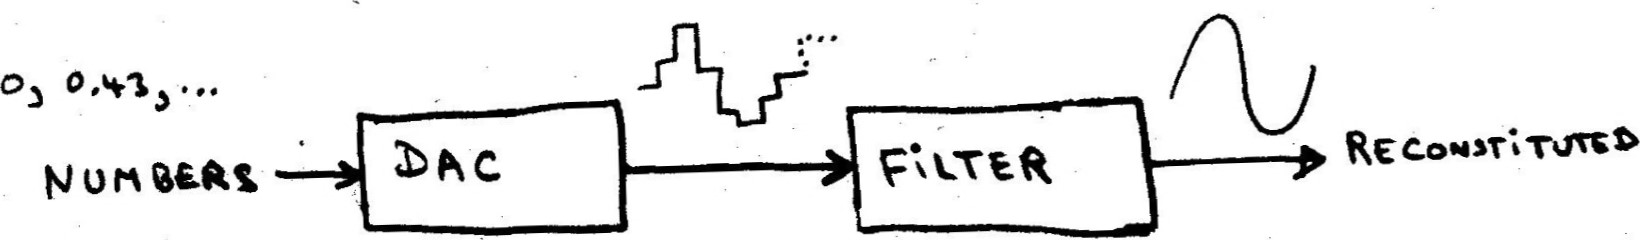 0, 0.43, ...
NUMBERS
DAC
FILTER
RECONSTITUTED